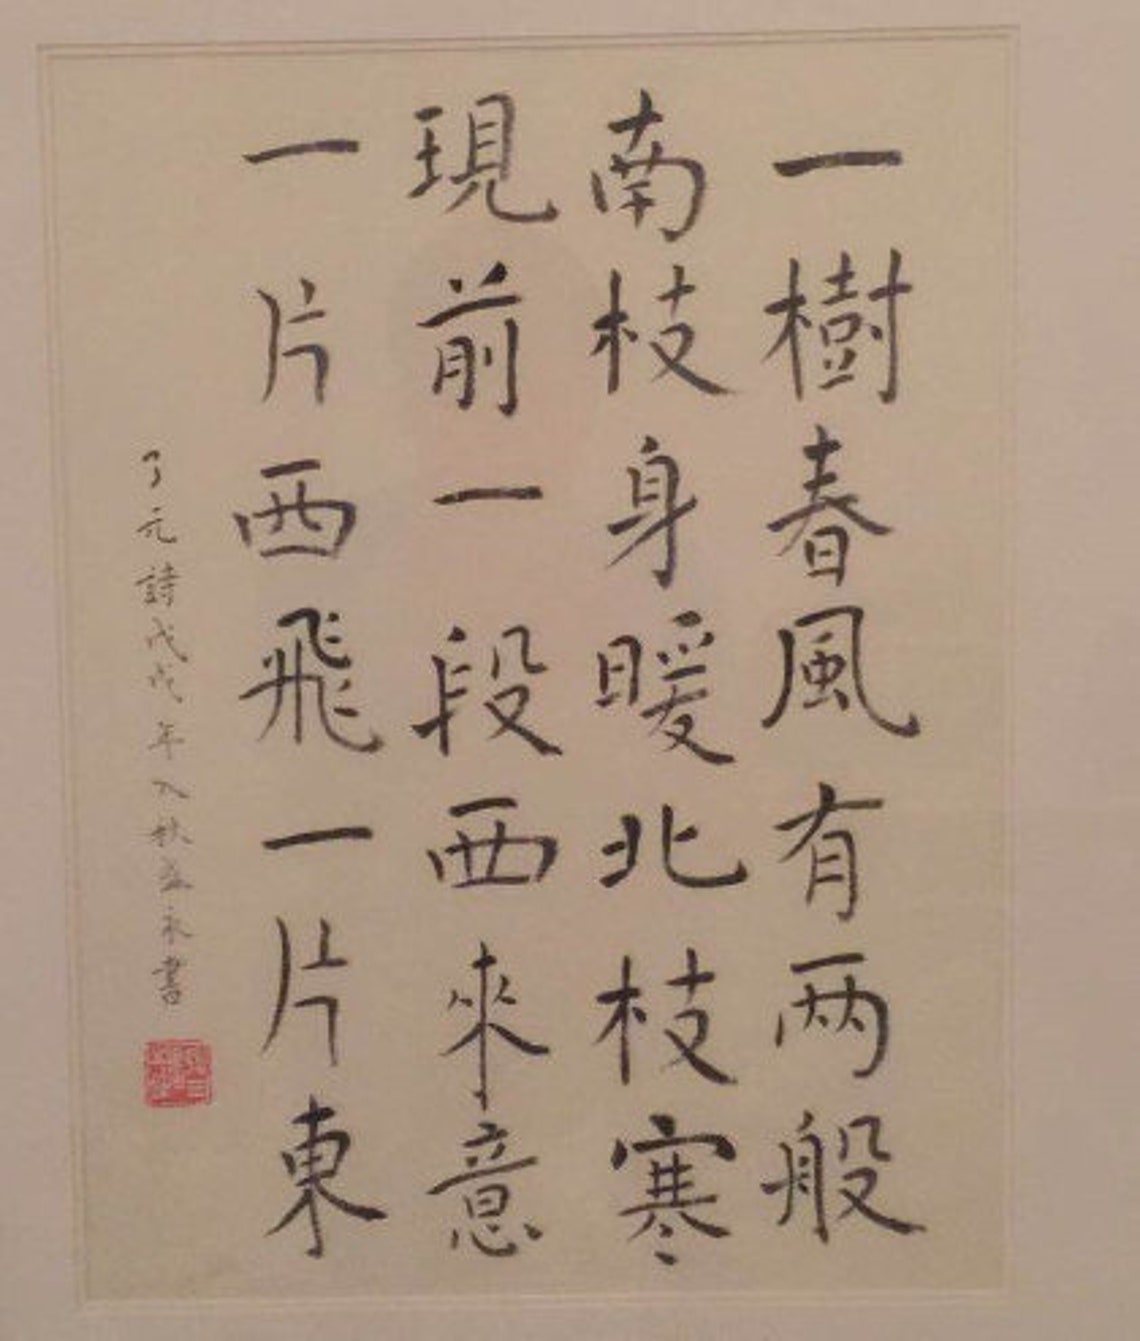 一樹春風有兩般
南枝身暖北枝寒
現前一段西來意
一片西飛一片東
了元詩戊戌年入秋益永書